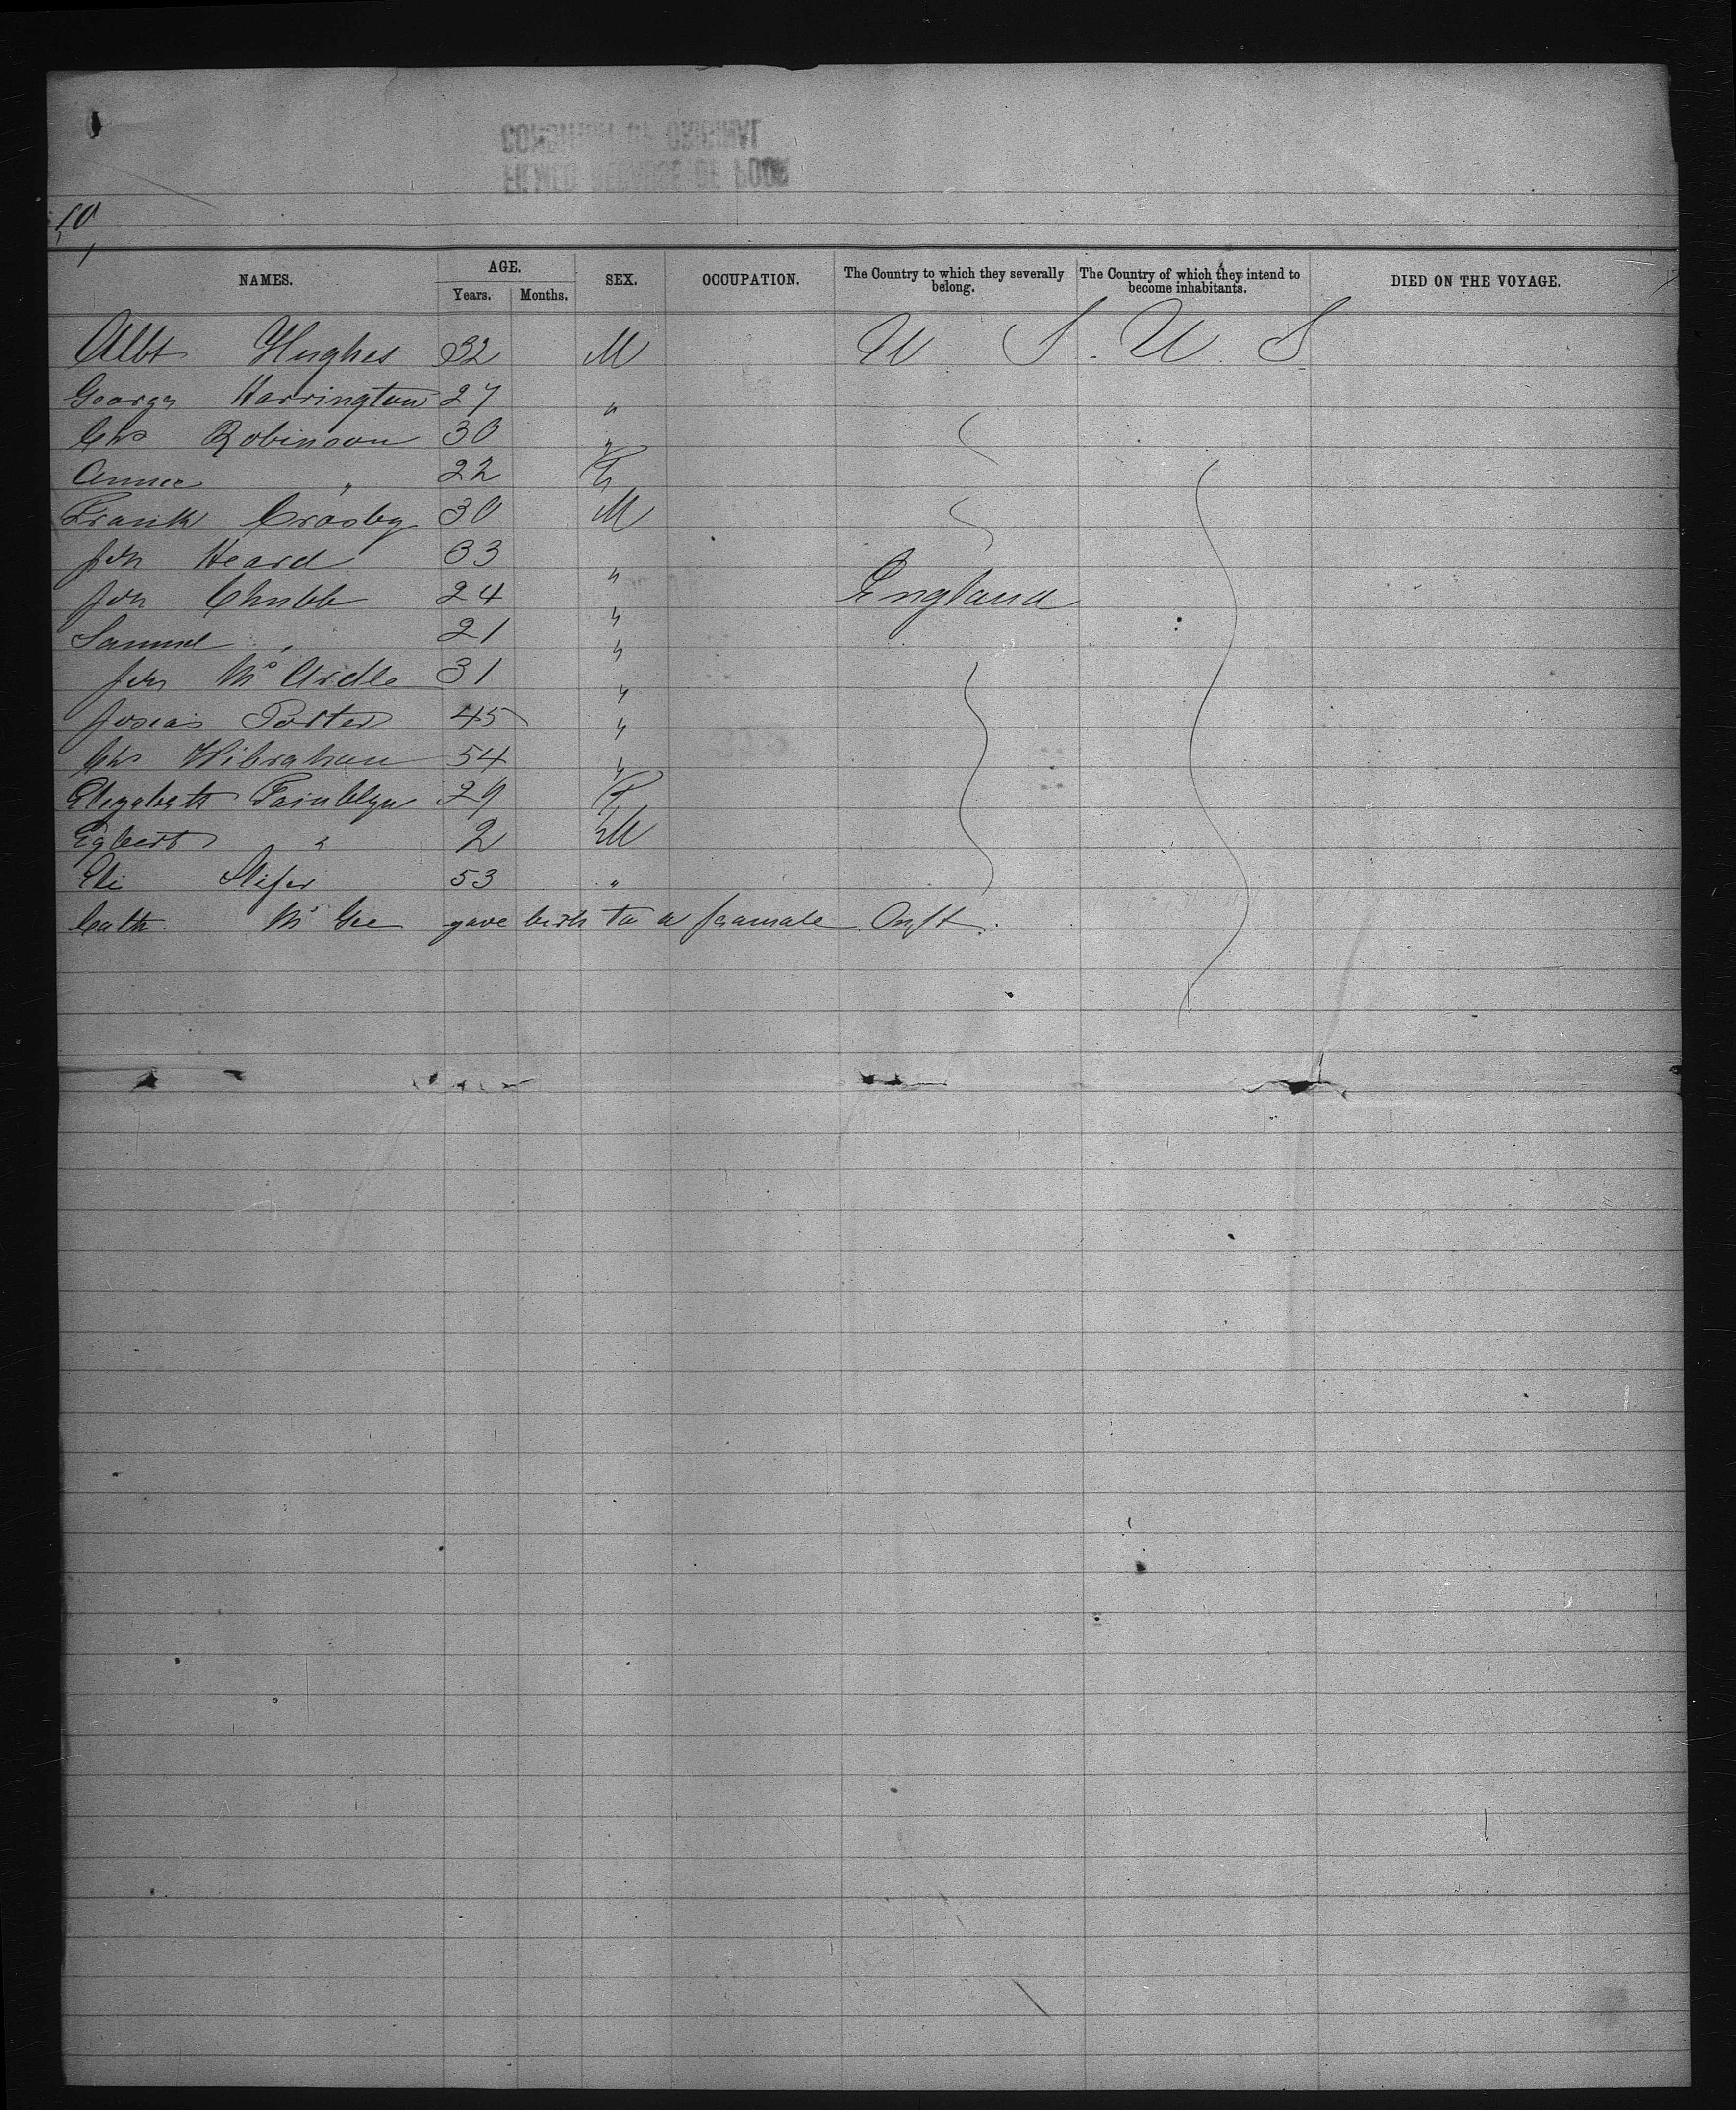 10
NAMES. AGE. Years. Months. SEX. OCCUPATION. The Country to which they severally belong. The Country of which they intend to become inhabitants. DIED ON THE VOYAGE.
Albt Hughes 32 M U S. U. S
George Harrington 27 "
Chs Robinson 30 "
Annie " 22 F
Frank Crosby 30 M
Jno Heard 33 "
Jno Chubb 24 " England
Samuel " 21 "
Jno McArdle 31 "
Josias Porter 45 "
Chs Wibraham 54 "
Elizabeth 29 F
Egbert " 2 M
Eli 53 "
Cath. McGee gave birth to a feamale Inft.